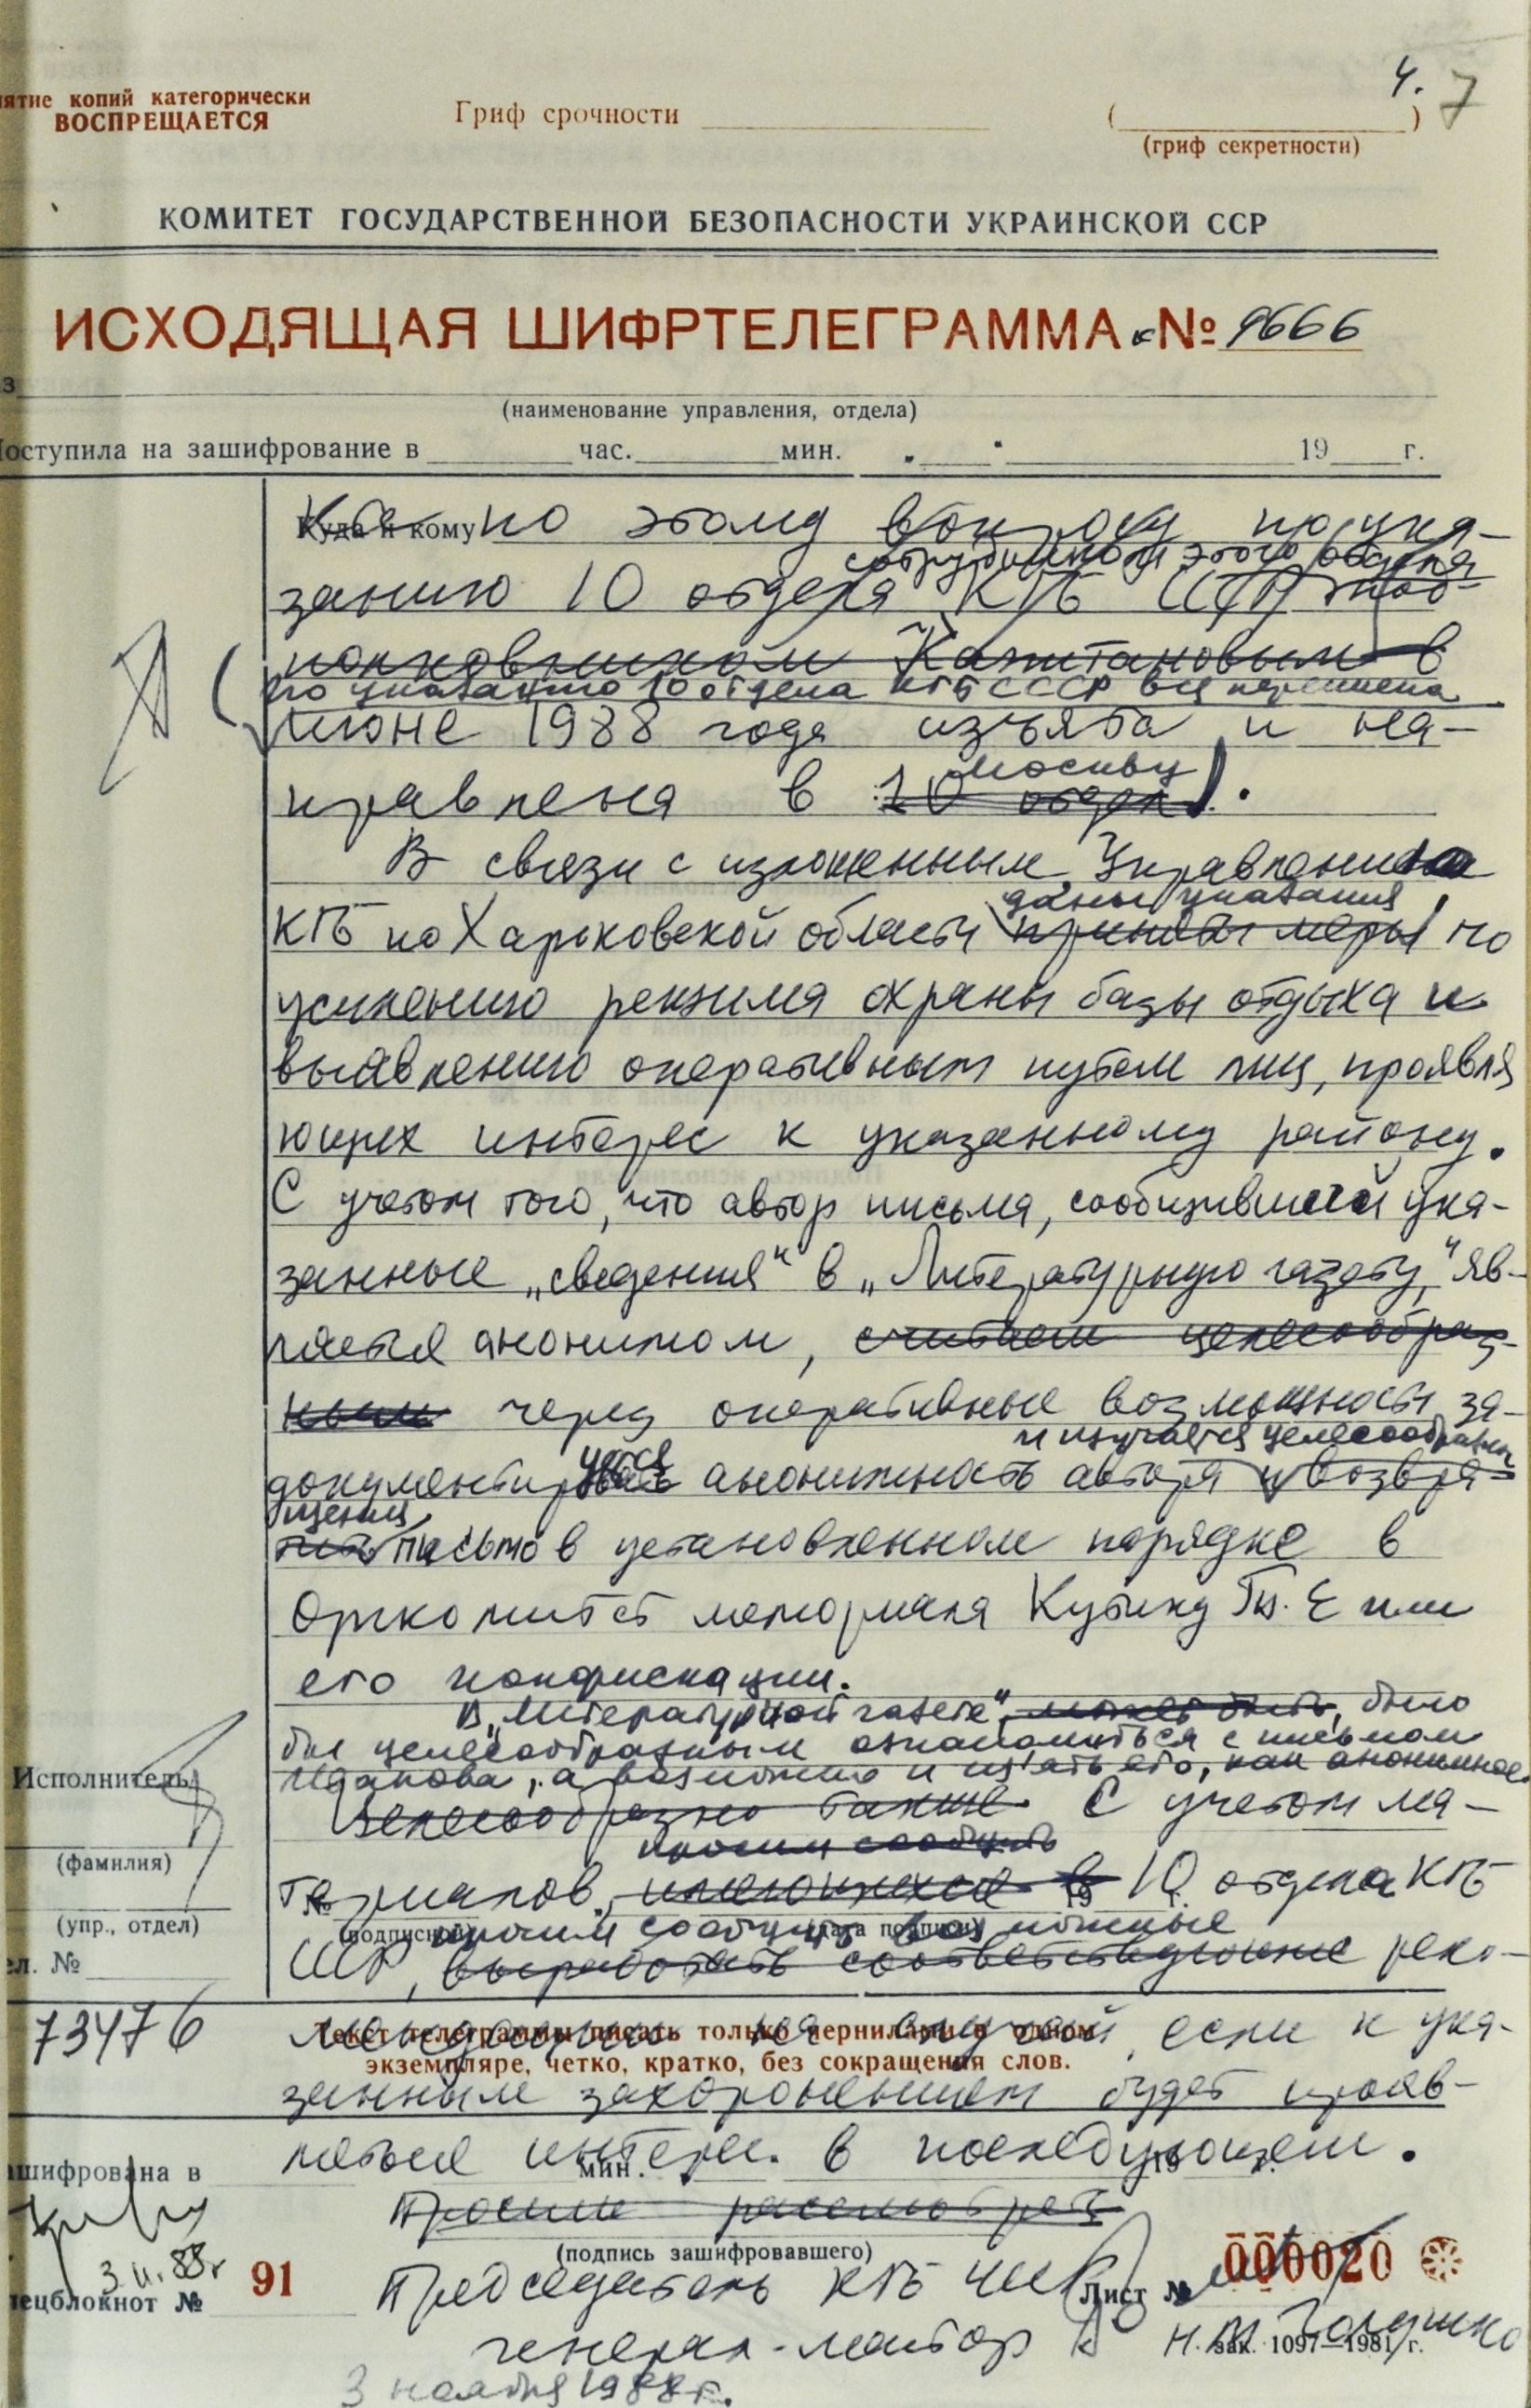 4. 7
нятие копий категорически
ВОСПРЕЩАЕТСЯ
Гриф срочности
(гриф секретности)
КОМИТЕТ ГОСУДАРСТВЕННОЙ БЕЗОПАСНОСТИ УКРАИНСКОЙ ССР
ИСХОДЯЩАЯ ШИФРТЕЛЕГРАММА к № 9666
з
(наименование управления, отдела)
Поступила на зашифрование в час. мин. " " 19 г.
Куда и кому по этому вопросу по ука-
сотрудником этого отдела
занию 10 отдела КГБ СССР под-
полковником Капитановым в
по указанию 10 отдела КГБ СССР вся переписка
июне 1988 года изъята и на-
Москву
правлена в 10 отдел).
В связи с изложенным Управлению
даны указания
КГБ по Харьковской области приняты меры по
усилению режима охраны базы отдыха и
выявлению оперативным путем лиц, проявля
ющих интерес к указанному району.
С учетом того, что автор письма, сообщивший ука-
занные „сведения" в „Литературную газету," яв-
ляется анонимом, считаем целесообраз-
ным через оперативные возможности за-
и изучается целесообразн
уется
документировать анонимность автора и возвра-
щения
тить письмо в установленном порядке в
Оргкомитет мемориала Кубинку Т. Е или
его конфискации.
В „Литературной газете", может быть, было
бы целесообразным ознакомиться с письмом
Жданова, а возможно и изъять его, как анонимное.
Целесообразно также С учетом ма-
просим сообщить
териалов, имеющихся в 10 отдела КГБ
просим сообщить возможные
СССР, выработать соответствующие реко-
мендации на случай, если к ука-
занным захоронениям будет прояв-
ляться интерес в последующем.
Просим рассмотреть
Председатель КГБ УССР
генерал-майор Н.М. Голушко
3 ноября 1988 г.
Исполнитель
(фамилия)
(упр., отдел)
ел. №
73476
№ 19 г.
(подписной) (дата подписи)
Текст телеграммы писать только чернилами в одном
экземпляре, четко, кратко, без сокращения слов.
ашифрована в мин. 19 г.
3.11.88 г
(подпись зашифровавшего)
пецблокнот № 91
Лист № 000020
зак. 1097—1981 г.